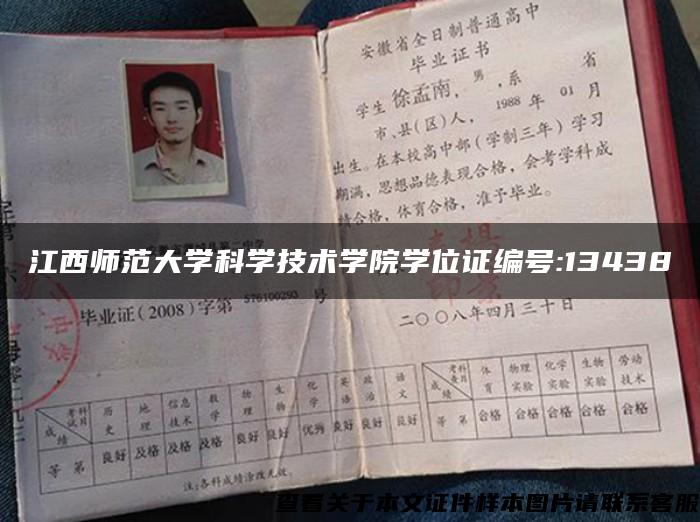 安徽省全日制普通高中
毕业证书
学生徐孟南，男，系 省
市、县(区)人，1988年01月
出生。在本校高中部（学制三年）学习
期满，思想品德表现合格，会考学科成
绩合格，体育合格，准予毕业。
江西师范大学科学技术学院学位证编号:13438
毕业证(2008)字第 576100293 号
二〇〇八年四月三十日
考试科目 历史 地理 信息技术 数学 物理 生物 化学 英语 政治 语文
成绩
等第 良好 及格 及格 及格 良好 良好 优秀 良好 良好 良好
注:各科成绩涂改无效。
考查科目 体育 物理实验 化学实验 生物实验 劳动技术
成绩
等第 合格 合格 合格 合格 合格
查看关于本文证件样本图片请联系客服